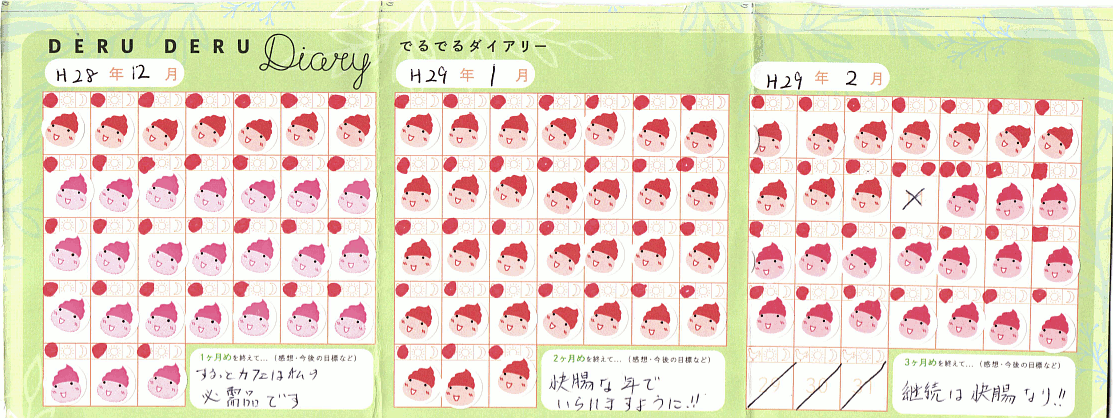 DERU DERU Diary
でるでるダイアリー
H28 年 12 月
H29 年 1 月
H29 年 2 月
1ヶ月めを終えて… (感想・今後の目標など)
するっとカフェは私の
必需品です
2ヶ月めを終えて… (感想・今後の目標など)
快腸な年で
いられますように!!
3ヶ月めを終えて… (感想・今後の目標など)
継続は快腸なり!!
29 30 31